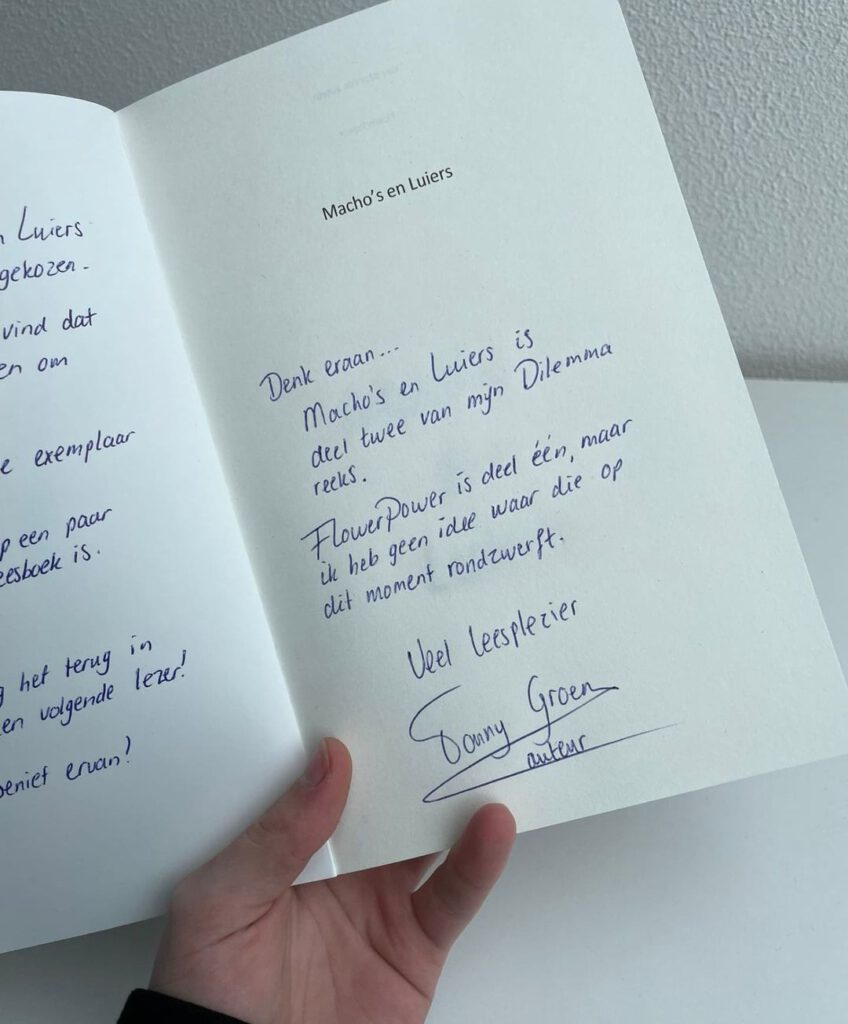 Luiers
gekozen.
vind dat
en om
exemplaar
een paar
is.
het terug in
volgende lezer!
ervan!
Macho's en Luiers
Denk eraan...
Macho's en Luiers is
deel twee van mijn Dilemma
reeks.
FlowerPower is deel één, maar
ik heb geen idee waar die op
dit moment rondzwerft.
Veel leesplezier
Groen
auteur